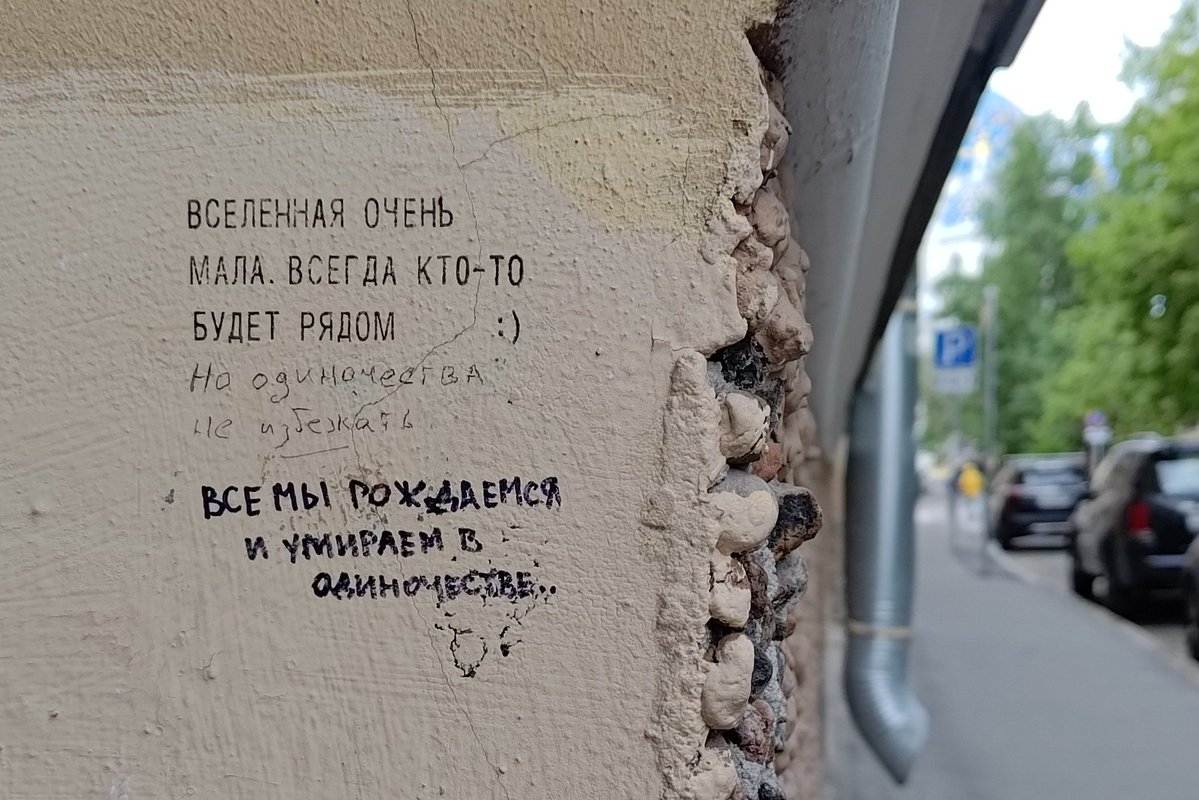 ВСЕЛЕННАЯ ОЧЕНЬ
МАЛА. ВСЕГДА КТО-ТО
БУДЕТ РЯДОМ :)
Но одиночества
не избежать
ВСЕ МЫ РОЖДАЕМСЯ
И УМИРАЕМ В
ОДИНОЧЕСТВЕ..
P